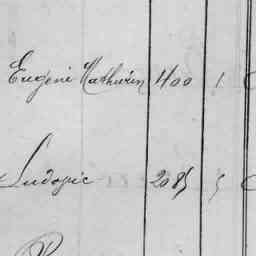 Eugene Mathurin 400 1
Ludovic 2085 5